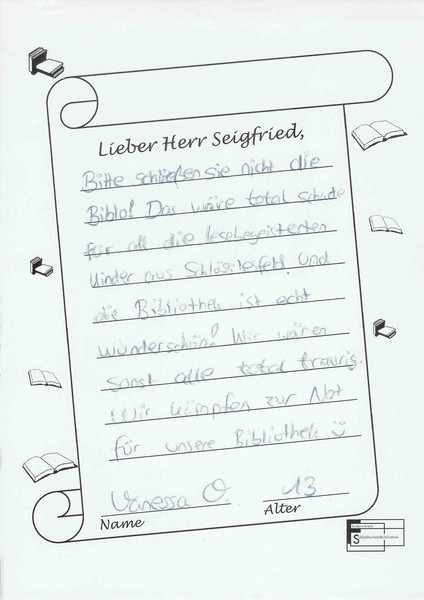 Lieber Herr Seigfried,
Bitte schließen sie nicht die
Biblo! Das wäre total schade
für all die lesebegeisterten
Kinder aus Schlösslesfeld! Und
die Bibliothek ist echt
wunderschön! Wir wären
sonst alle total traurig.
Wir kämpfen zur Not
für unsere Bibliothek :)
Vanessa O. 13
Name Alter